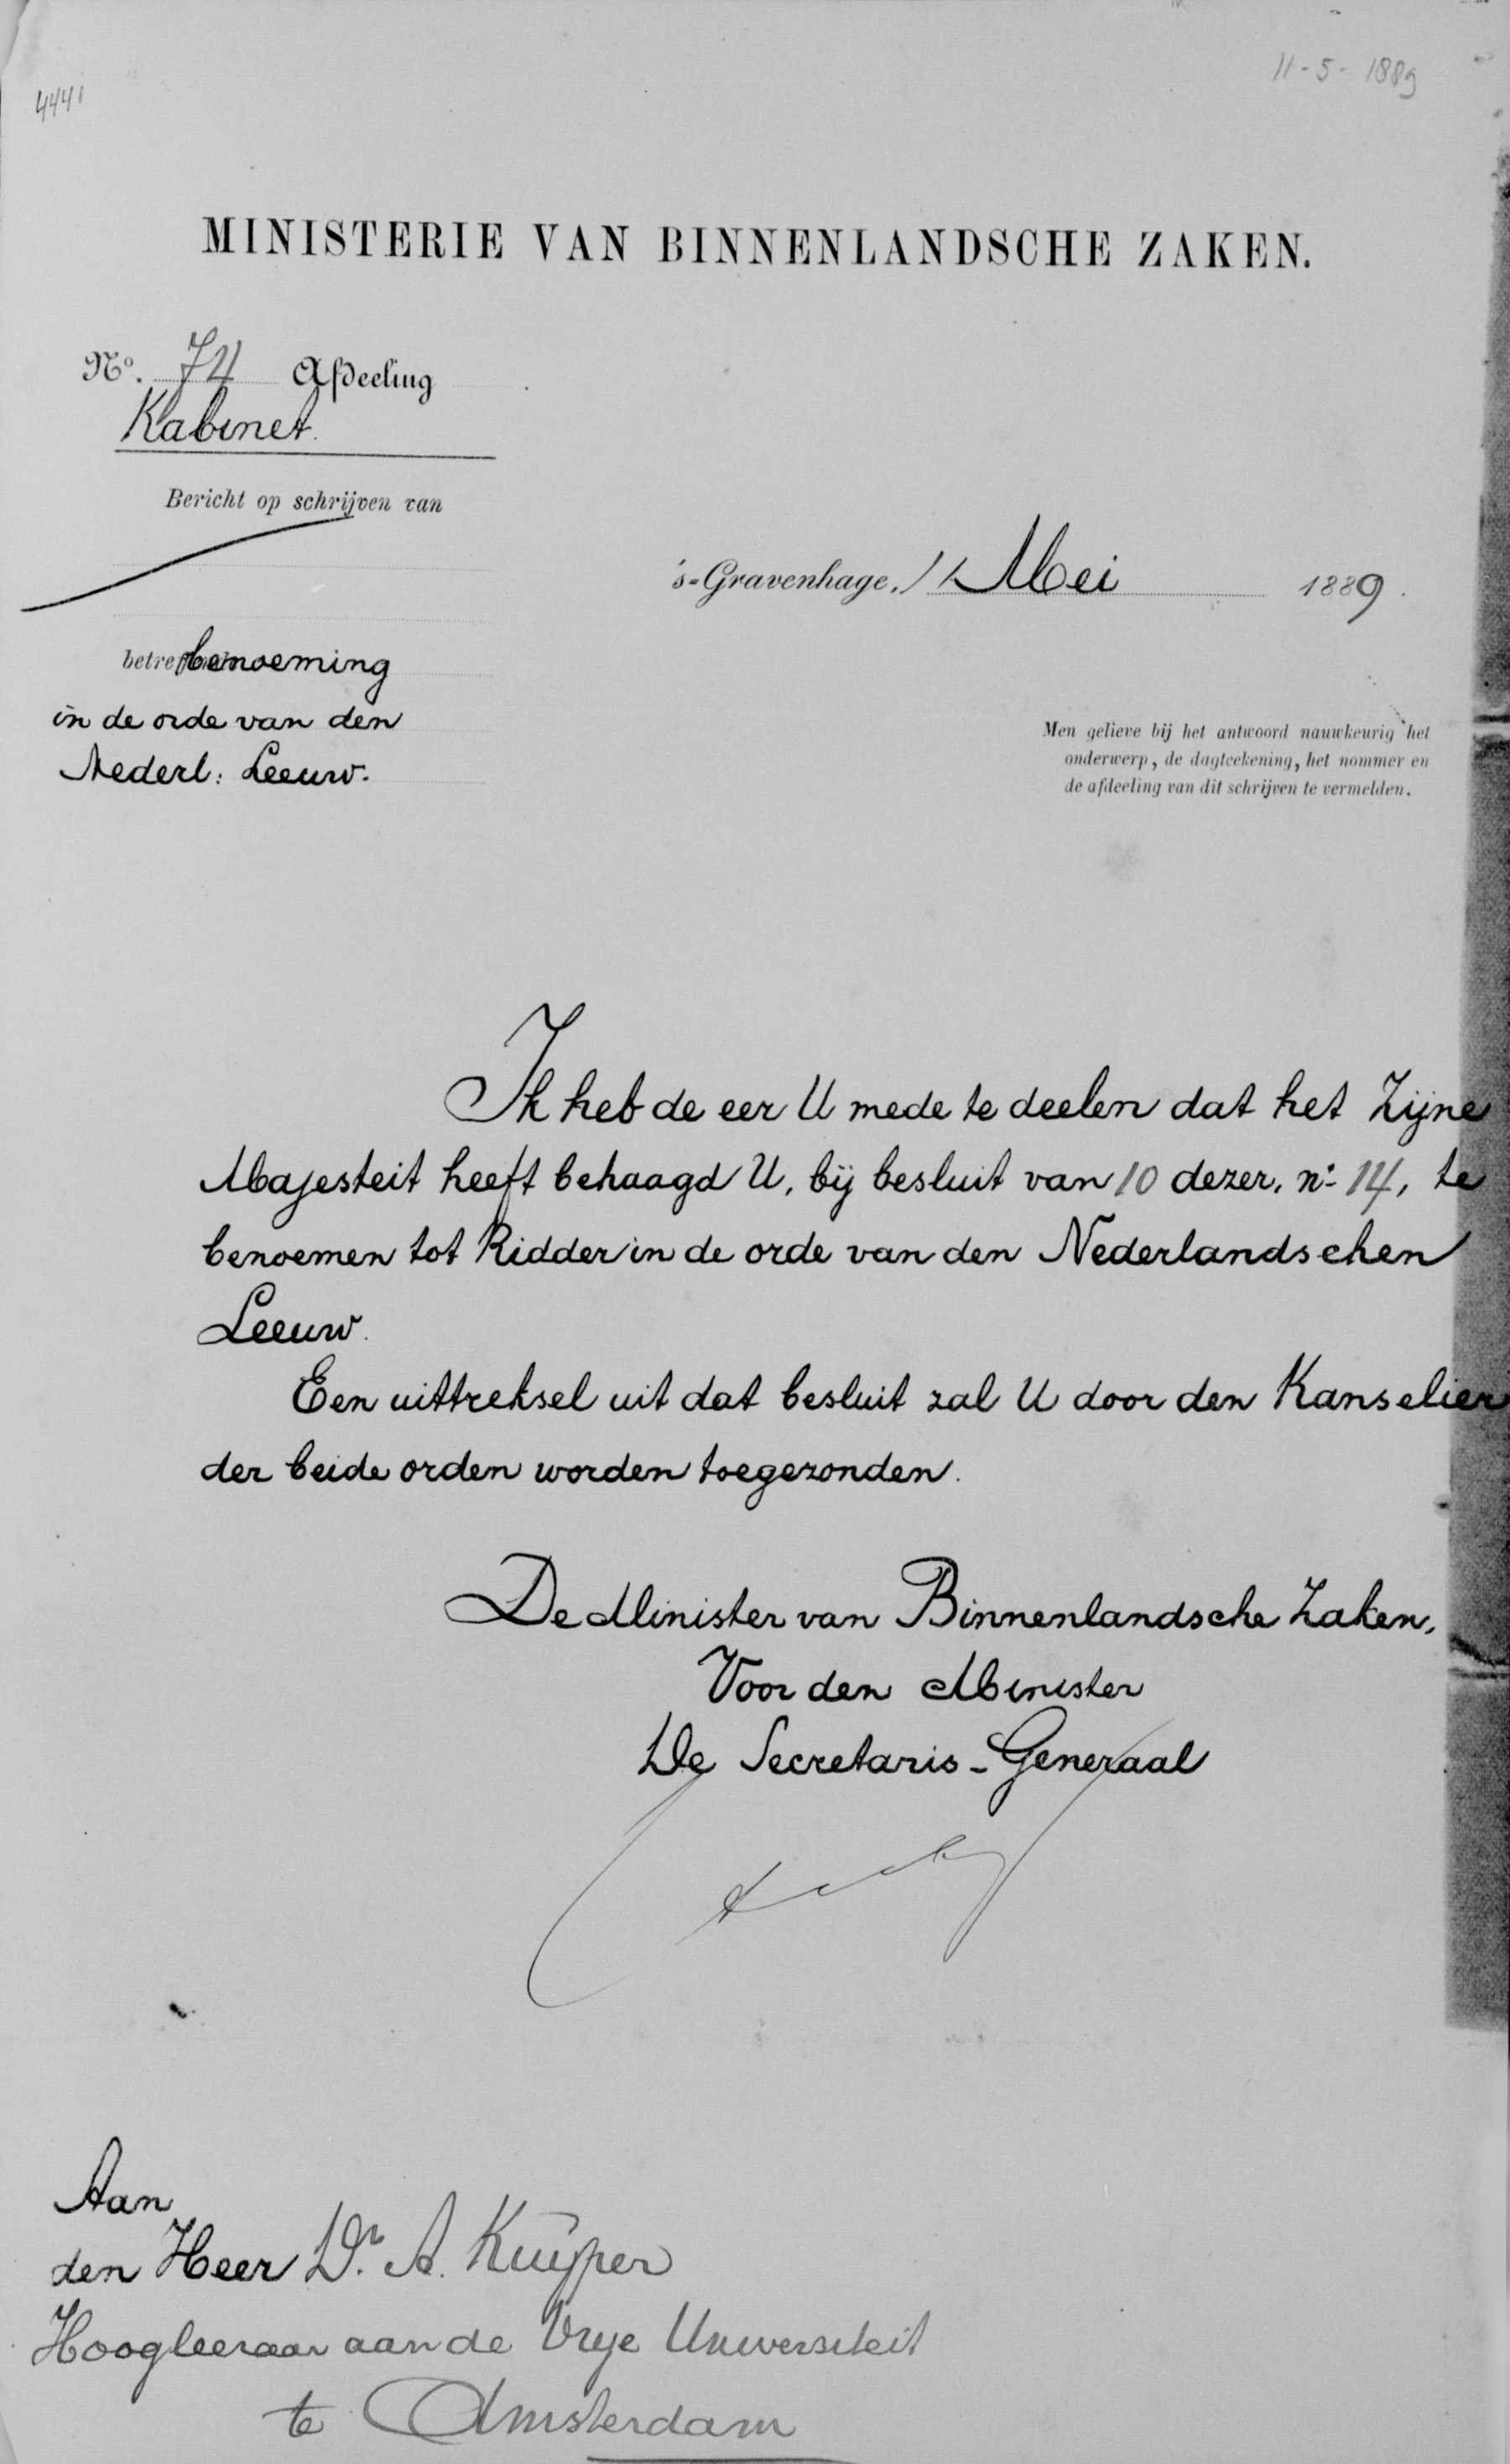 4441
11-5-1889
MINISTERIE VAN BINNENLANDSCHE ZAKEN.
No. 74 Afdeeling
Kabinet.
Bericht op schrijven van
's-Gravenhage, 11 Mei 1889.
benoeming
in de orde van den
Nederl: Leeuw.
Men gelieve bij het antwoord nauwkeurig het
onderwerp, de dagteekening, het nommer en
de afdeeling van dit schrijven te vermelden.
Ik heb de eer U mede te deelen dat het Zijne
Majesteit heeft behaagd U, bij besluit van 10 dezer, no 14, te
benoemen tot Ridder in de orde van den Nederlandschen
Leeuw.
Een uittreksel uit dat besluit zal U door den Kanselier
der beide orden worden toegezonden.
De Minister van Binnenlandsche Zaken,
Voor den Minister
De Secretaris-Generaal
Aan
den Heer Dr. A. Kuyper
Hoogleeraar aan de Vrije Universiteit
te Amsterdam